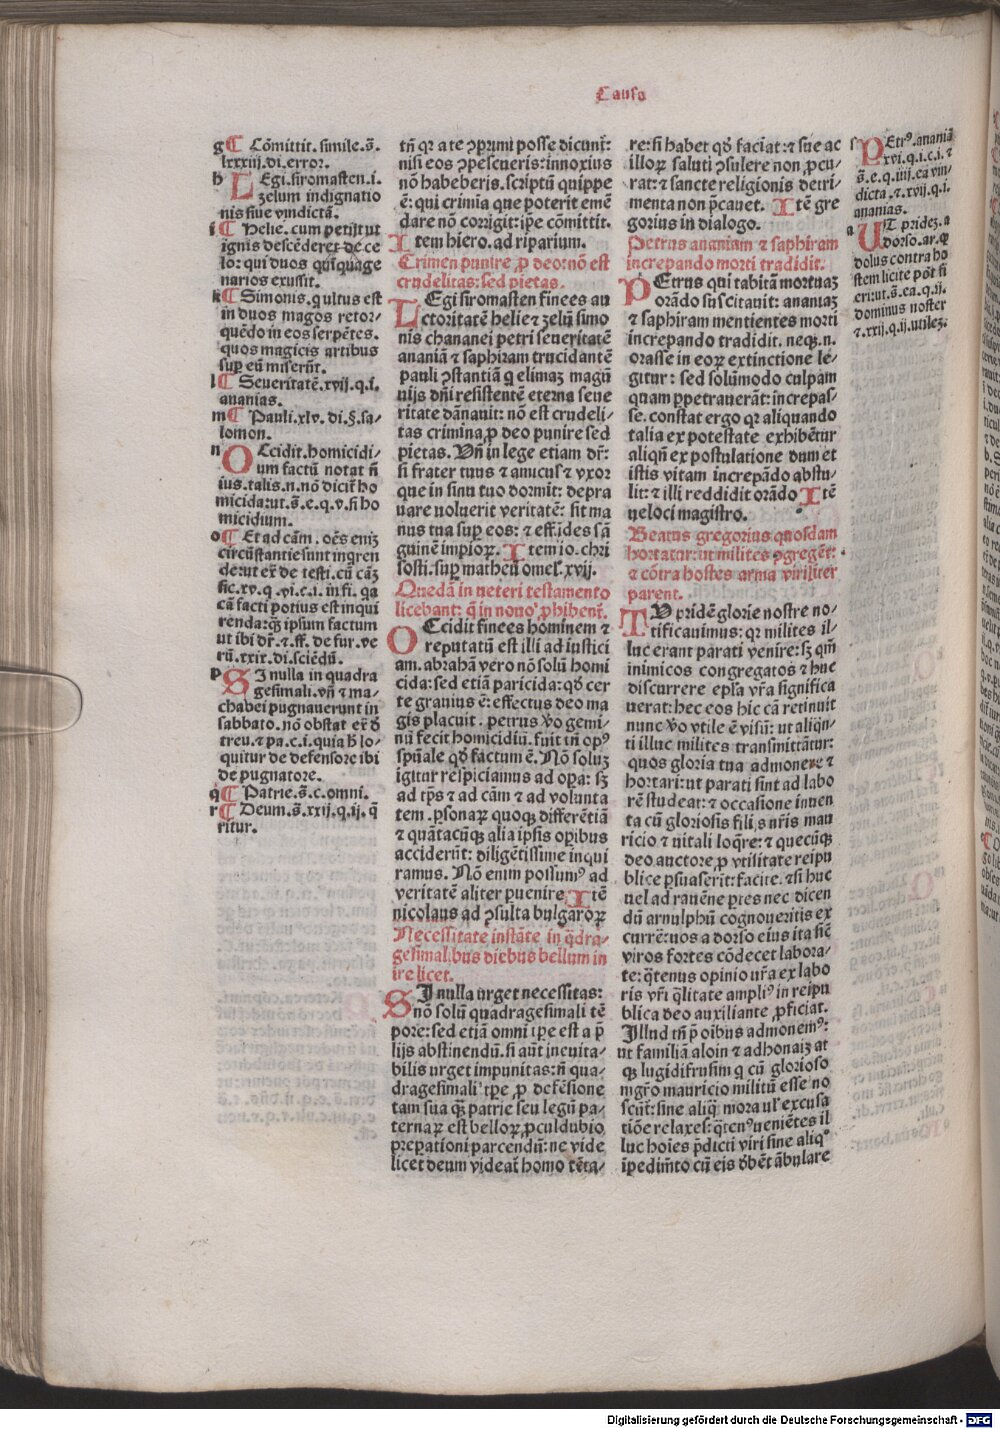 Causa
g ¶ Cōmittit. simile. s̄.
lxxxiij. di. error.
h LEgi. siromasten. i.
zelum indignatio
nis siue vindictā.
i ¶ Helie. cum petijt ut
ignis descēderet de ce
lo: qui duos quīquage
narios exussit.
k ¶ Simonis. qui ultus est
in duos magos retor/
quēdo in eos serpētes.
quos magicis artibus
sup eū miserūt.
l ¶ Seueritatē. xvij. q. i.
ananias.
m ¶ Pauli. xlv. di. §. sa/
lomon.
n OCcidit. homicidi/
um factū notat n̄
ius. talis. n. nō dicit̄ ho
micida: ut. s̄. e. q. v. si ho
micidium.
o ¶ Et ad cām. oēs eniȝ
circūstantie sunt inqren
de: ut ex̄ de testi. cū cāȝ
sic. xv. q. vi. c. i. in fi. qa
cā facti potius est inqui
renda: qȝ ipsum factum
ut ibi dr̄. & ff. de fur. ve
rū. xxix. di. sciēdū.
p SI nulla in quadra
gesimali. vn̄ & ma/
chabei pugnauerunt in
sabbato. nō obstat ex̄ d̄
treu. & pa. c. i. quia h̄ lo/
quitur de defensore ibi
de pugnatore.
q ¶ Patrie. s̄. c. omni.
r ¶ Deum. s̄. xxij. q. ij. q̄
ritur.
tn̄ qr a te ꝯprimi posse dicunt̄:
nisi eos ꝯpescueris: innoxius
nō habeberis. scriptū quippe
ē: qui crimīa que poterit emē
dare nō corrigit: ip̄e cōmittit.
Item hiero. ad riparium.
Crimen punire ꝓ deo: nō est
crudelitas: sed pietas.
LEgi siromasten finees au
ctoritatē helie & zelū simo
nis chananei petri seueritatē
ananiā & saphiram trucidantē
pauli ꝯstantiā q elimaȝ magū
uijs dn̄i resistentē eterna seue
ritate dānauit: nō est crudeli/
tas crimina ꝓ deo punire sed
pietas. Vn̄ in lege etiam dr̄:
si frater tuus & amicus & vxor
que in sinu tuo dormit: depra
uare voluerit veritatē: sit ma
nus tua sup eos: & effūdes sā
guinē impioꝝ. Item io. chri
sosti. sup matheū omel. xvij.
Quedā in ueteri testamento
licebant: q̄ in nouo ꝓhibent̄.
OCcidit finees hominem &
reputatū est illi ad iustici
am. abrahā vero nō solū homi
cida: sed etiā paricida: qd̄ cer
te grauius ē: effectus deo ma
gis placuit. petrus v̄o gemi/
nū fecit homicidiū. fuit tn̄ opꝰ
spūale qd̄ factum ē. Nō soluȝ
igitur respiciamus ad opa: sȝ
ad tp̄s & ad cām & ad volunta
tem. psonaꝝ quoqȝ differētiā
& quātacūqȝ alia ipsis opibus
acciderūt: diligētissime inqui
ramus. Nō enim possumꝰ ad
veritatē aliter puenire Itē
nicolaus ad ꝯsulta bulgaroꝝ
Necessitate instāte in q̄dra/
gesimalibus diebus bellum in
ire licet.
SI nulla urget necessitas:
nō solū quadragesimali tē
pore: sed etiā omni tpe est a p̄
lijs abstinendū. si aūt ineuita/
bilis urget impunitas: n̄ qua/
dragesimali tp̄e ꝓ defēsione
tam sua qȝ patrie seu legū pa/
ternaꝝ est belloꝝ ꝓculdubio
prepationi parcendū: ne vide
licet deum videat̄ homo tēta/
re: si habet qd̄ faciat: & sue ac
illoꝝ saluti ꝯsulere non ꝓcu/
rat: & sancte religionis detri/
menta non p̄cauet. Itē gre
gorius in dialogo.
Petrus ananiam & saphiram
increpando morti tradidit.
PEtrus qui tabitā mortuaȝ
orādo suscitauit: ananiaȝ
& saphiram mentientes morti
increpando tradidit. neqȝ. n.
orasse in eoꝝ extinctione le/
gitur: sed solūmodo culpam
quam ppetrauerāt: increpas/
se. constat ergo qr aliquando
talia ex potestate exhibētur
aliqn̄ ex postulatione dum et
istis vitam increpādo abstu/
lit: & illi reddidit orādo Itē
ueloci magistro.
Beatus gregorius quosdam
hortatur: ut milites ꝯgregēt:
& cōtra hostes arma viriliter
parent.
UT pridē glorie nostre no/
tificauimus: qr milites il/
luc erant parati venire: sȝ qm̄
inimicos congregatos & huc
discurrere epl̄a vr̄a significa
uerat: hec eos hic cā retinuit
nunc v̄o vtile ē visū: ut aliqn̄
ti illuc milites transmittātur:
quos gloria tua admonere &
hortari: ut parati sint ad labo
rē studeat: & occasione inuen
ta cū gloriosis filijs nr̄is mau
ricio & uitali loqre: & quecūqȝ
deo auctore ꝓ vtilitate reipu
blice psuaserīt: facite. & si huc
uel ad rauēne ptes nec dicen
dū arnulphū cognoueritis ex
currē: uos a dorso eius ita siē
viros fortes cōdecet labora/
te: q̄tenus opinio ur̄a ex labo
ris vr̄i q̄litate ampliꝰ in reipu
blica deo auxiliante ꝓficiat.
Illud tn̄ p oibus admonemꝰ:
ut familiā aloin & adhonaiȝ at
qȝ lugidifrusim q cū glorioso
mgr̄o mauricio militū esse no
scūt: sine aliq̄ mora ul̓ excusa
tiōe relaxes: q̄tenꝰ ueniētes il
luc hoies p̄dicti viri sine aliqͦ
īpedim̄to cū eis d̄bēt ābulare
s PEtrꝰ. ananiā
xvi. q. i. c. i. &
s̄. e. q. iiij. ea vin/
dicta. & xvij. q. i.
ananias.
a UT prideȝ. a
dorso. ar. q
dolus contra ho
stem licite pōt fi
eri: ut. s̄. ea. q. ij.
dominus noster
& xxij. q. ij. utileȝ.
Digitalisierung gefördert durch die Deutsche Forschungsgemeinschaft - DFG